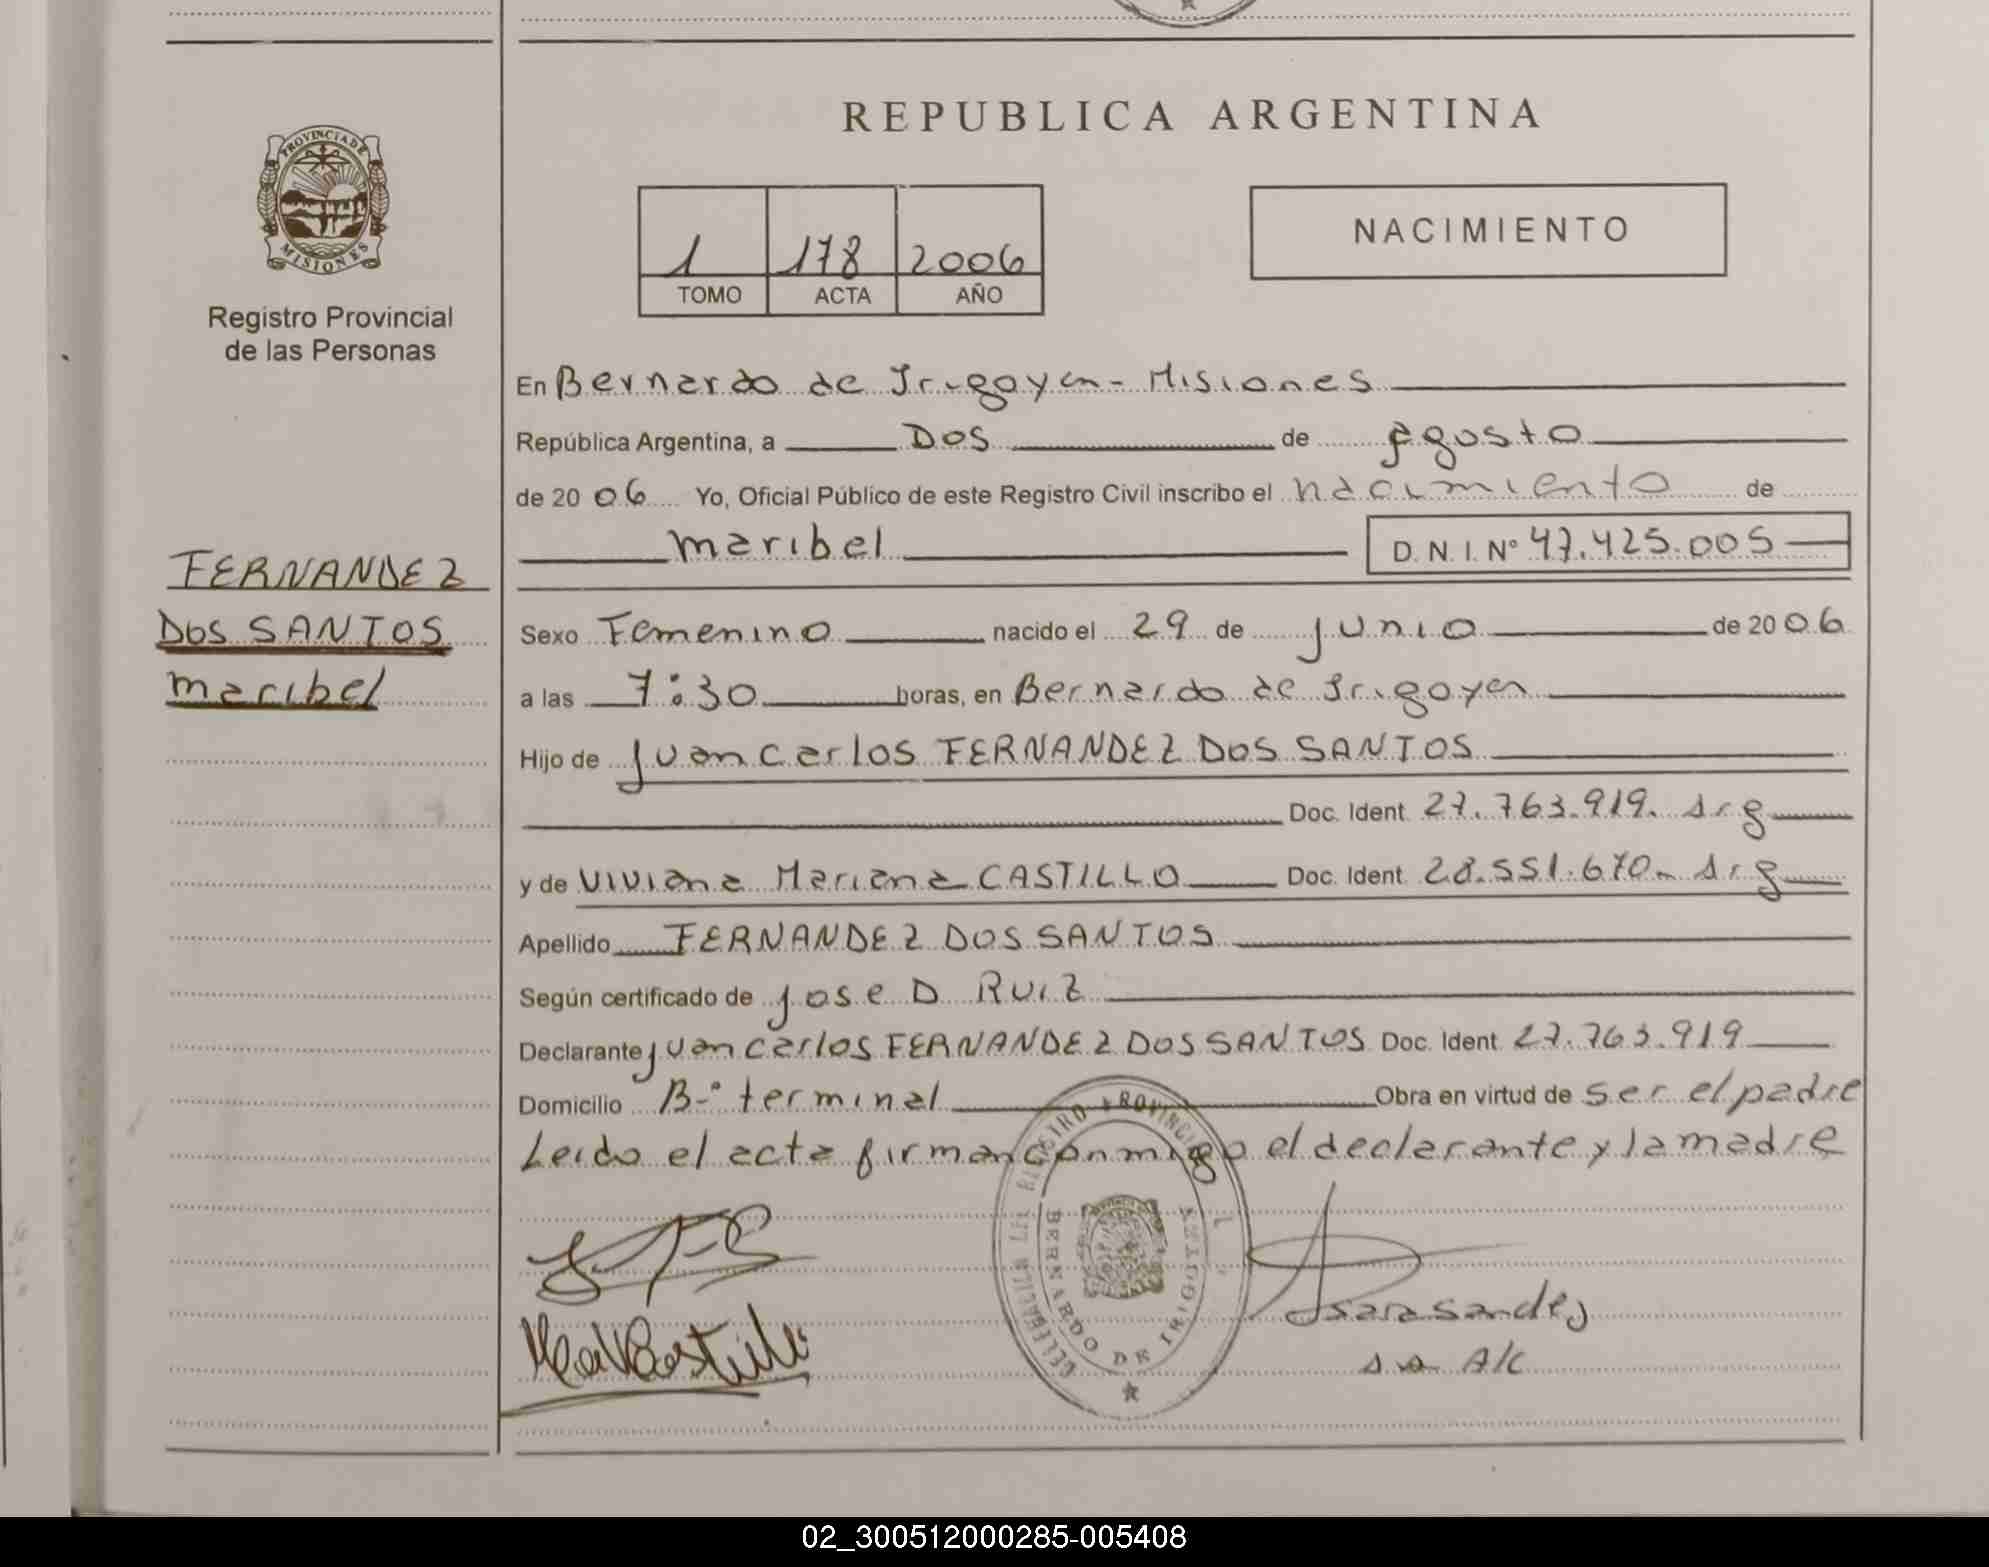 REPUBLICA ARGENTINA
PROVINCIA DE MISIONES
Registro Provincial
de las Personas
1 178 2006
TOMO ACTA AÑO
NACIMIENTO
En Bernardo de Irigoyen - Misiones
República Argentina, a Dos de Agosto
de 2006 Yo, Oficial Público de este Registro Civil inscribo el nacimiento de
maribel D.N.I. Nº 47.425.005
FERNANDEZ
DOS SANTOS
maribel
Sexo Femenino nacido el 29 de junio de 2006
a las 7:30 horas, en Bernardo de Irigoyen
Hijo de Juan carlos FERNANDEZ DOS SANTOS
Doc. Ident. 27.763.919. Arg
y de Viviana Mariana CASTILLO Doc. Ident. 28.551.670- Arg
Apellido FERNANDEZ DOS SANTOS
Según certificado de Jose D RUIZ
Declarante Juan carlos FERNANDEZ DOS SANTOS Doc. Ident. 27.763.919
Domicilio B-º terminal Obra en virtud de ser el padre
Leido el acta firman conmigo el declarante y la madre
DELEGACION DEL REGISTRO PROVINCIAL
BERNARDO DE IRIGOYEN
A/C
02_300512000285-005408